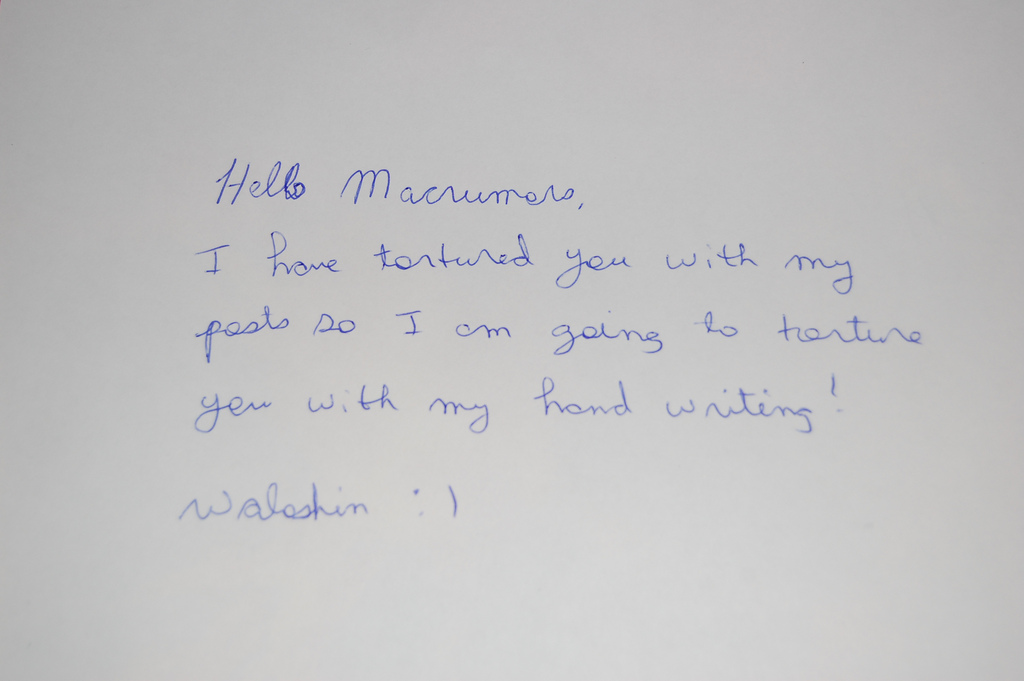 Hello Macrumors,
I have tortured you with my
posts so I am going to torture
you with my hand writing!
Waloshin :)